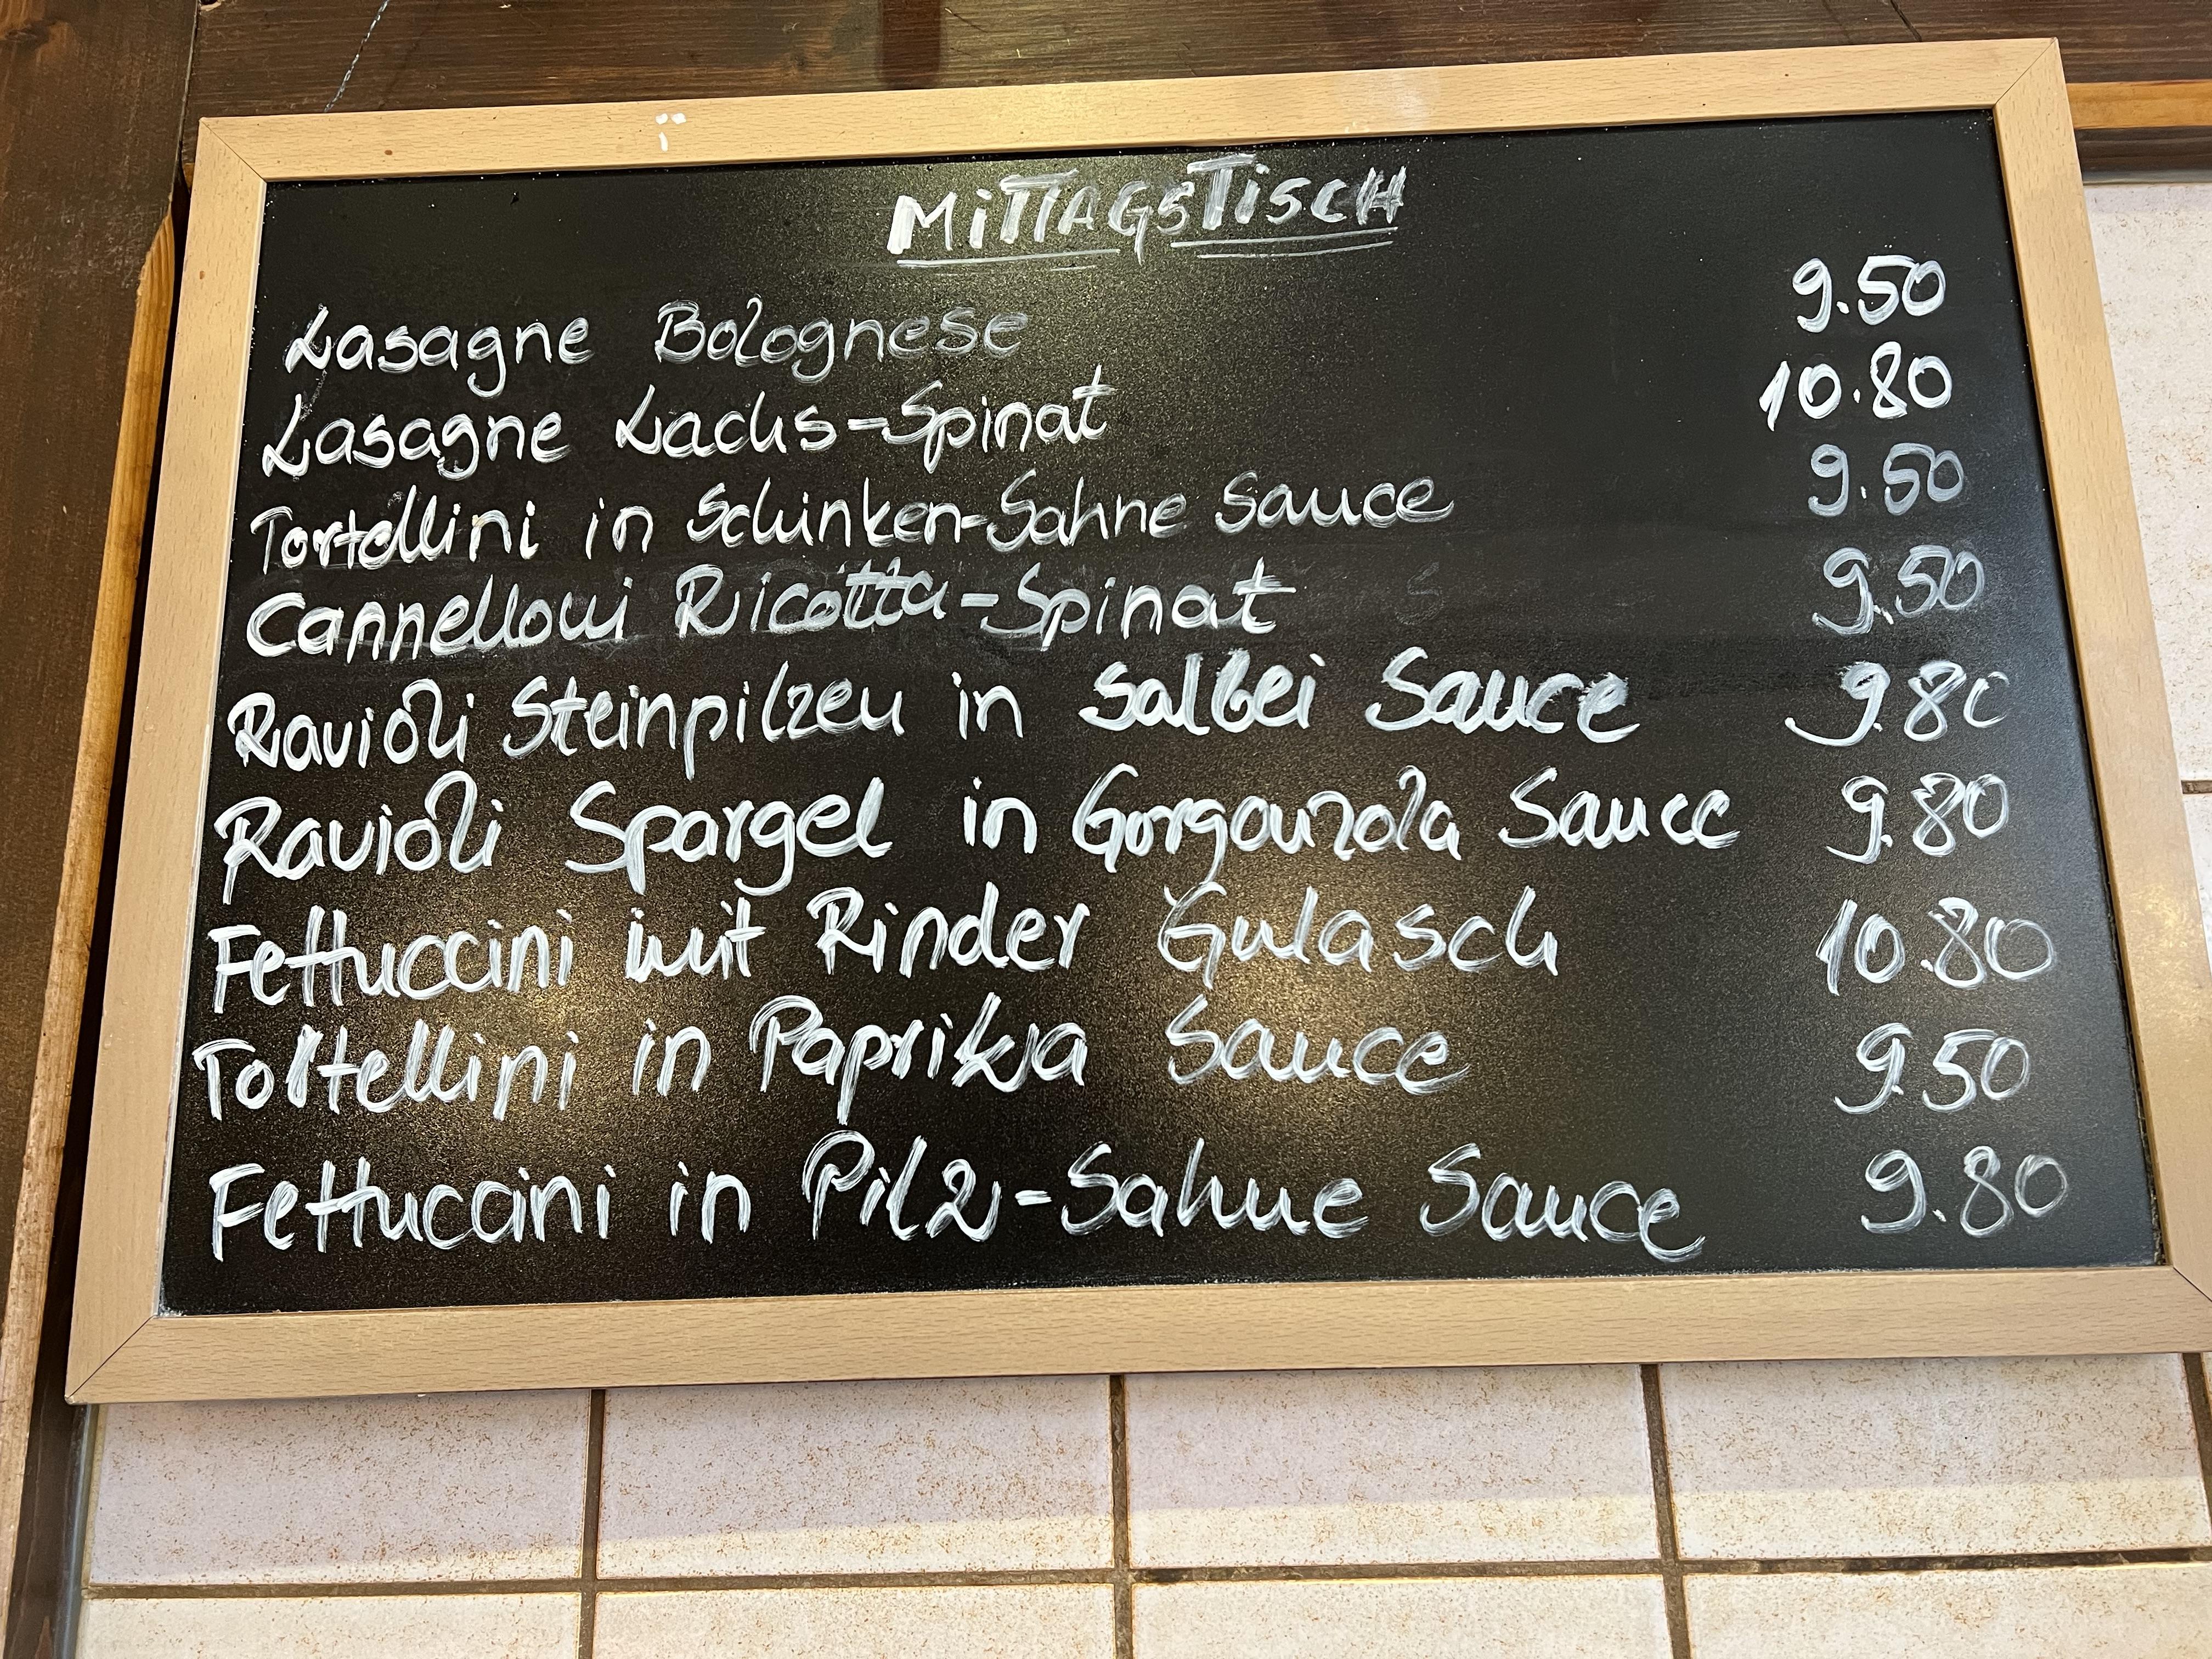 MITTAGSTISCH
Lasagne Bolognese 9.50
Lasagne Lachs-Spinat 10.80
Tortellini in Schinken-Sahne Sauce 9.50
Cannelloni Ricotta-Spinat 9.50
Ravioli Steinpilzen in Salbei Sauce 9.80
Ravioli Spargel in Gorgonzola Sauce 9.80
Fettuccini mit Rinder Gulasch 10.80
Tortellini in Paprika Sauce 9.50
Fettuccini in Pilz-Sahne Sauce 9.80